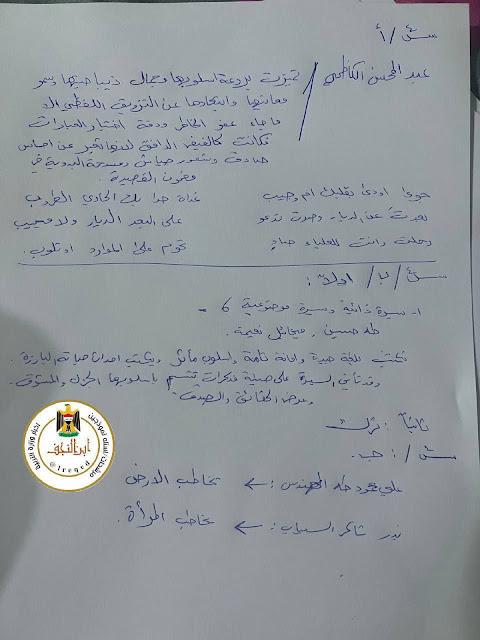 س٤ / أ
عبد المحسن الكاظمي / تميزت بروعة اسلوبها وجمال ديباجتها وسمو
معانيها وابتعادها عن التزويق اللفظي الا
ما جاء عفو الخاطر ودقة اختيار العبارات
فكانت كالفيض الدافق لانها تعبر عن احساس
صادق وشعور جياش ومسحة البدوية في
مضمون القصيدة.
جوى اودى بقلبك ام وجيب غداة حدا بك الحادي الطروب
بعدت عن الديار وصرت تدعو على البعد الديار ولا مجيب
رحلت وانت للعلياء صادٍ تحوم على الموارد او تلوب.
س٤ / ب / اولاً:
١- سيرة ذاتية وسيرة موضوعية
طه حسين، ميخائيل نعيمة.
تكتب بلغة جيدة وامانة تامة واسلوب مؤثر ويكتب احداث حياتهم البارزة.
وقد تأتي السيرة على صيغة مذكرات تتسم باسلوبها الجزل والمشوق.
وعرض الحقائق والصدق.
ثانياً: ترك
س / جـ
علي محمود طه المهندس: ← يخاطب الارض
بدر شاكر السياب: ← يخاطب المرأة.
اخبار وزارة التربية
ابن النجف
@Ireqed